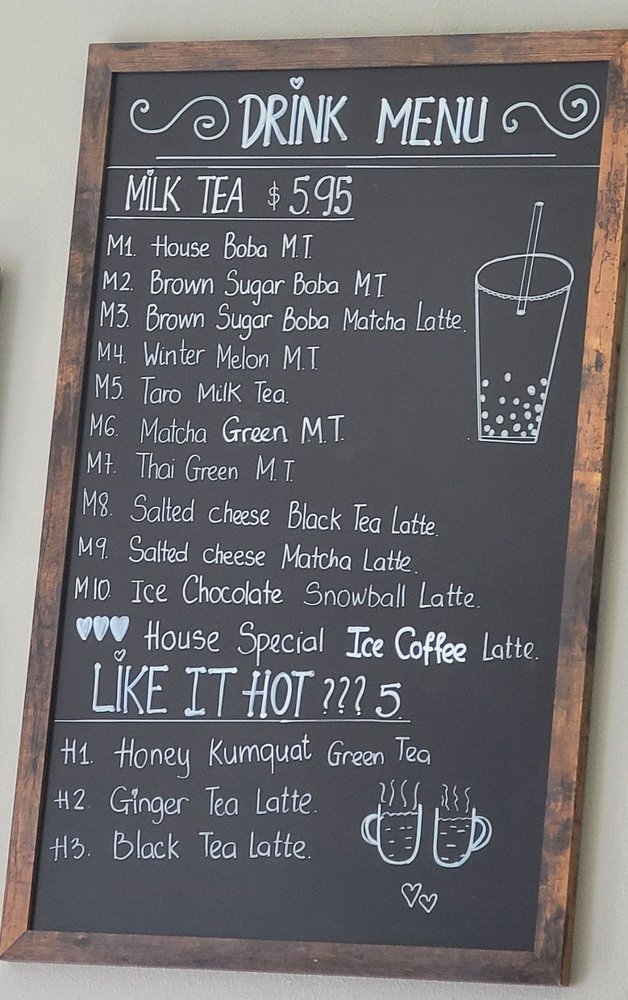 DRINK MENU
MILK TEA $5.95
M1. House Boba M.T.
M2. Brown Sugar Boba M.T.
M3. Brown Sugar Boba Matcha Latte.
M4. Winter Melon M.T.
M5. Taro Milk Tea.
M6. Matcha Green M.T.
M7. Thai Green M.T.
M8. Salted cheese Black Tea Latte.
M9. Salted cheese Matcha Latte.
M10. Ice Chocolate Snowball Latte.
House Special Ice Coffee Latte.
LIKE IT HOT ??? 5.
H1. Honey Kumquat Green Tea
H2. Ginger Tea Latte.
H3. Black Tea Latte.